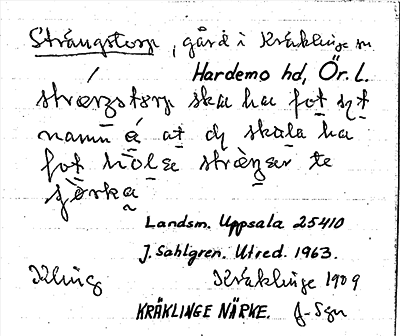 Strångstorp, gård i Kräklinge sn
Hardemo hd, Ör. L.
strængstorp ska ha fot sɪt
namn å at dɪ skula ha
fot hölsa strænger te
çörka
Landsm. Uppsala 25410
J. Sahlgren. Utred. 1963.
Kling Kräklinge 1909
KRÄKLINGE NÄRKE. J-Sgn